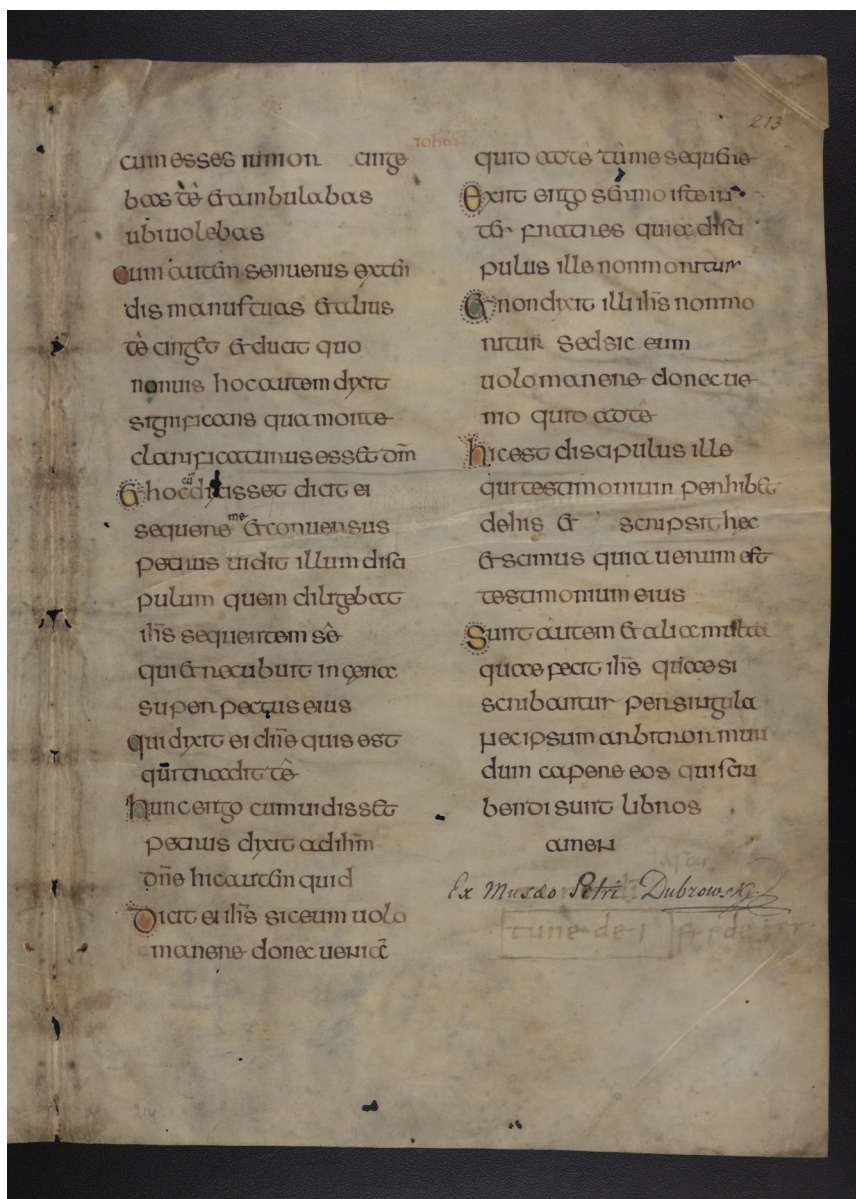 213
iohan
cum esses iunior cinge
bas te & ambulabas
ubi uolebas
Cum autem senueris exten
dis manus tuas & alius
te cing& & ducit quo
non uis hoc autem dixit
significans qua morte
clarificaturus ess& dm̄
& hoc cū dixisset dicit ei
sequere me & conuersus
petrus uidit illum disci
pulum quem diligebat
ihs̄ sequentem se
qui & recubuit in cena
super pectus eius
qui dixit ei dn̄e quis est
qui tradit te
hunc ergo cum uidiss&
petrus dixit ad ihm̄
dn̄e hic autem quid
Dicit ei ihs̄ sic eum uolo
manere donec ueniā
quid ad te tu me sequere
Exiit ergo sermo iste in
ter fratres quia disci
pulus ille non moritur
& non dixit illi ihs̄ non mo
ritur sed sic eum
uolo manere donec ue
nio quid ad te
hic est discipulus ille
qui testimonium perhib&
de his & scripsit hec
& scimus quia uerum est
testimonium eius
Sunt autem & alia multa
quae fecit ihs̄ quae si
scribantur per singula
nec ipsum arbitror mun
dum capere eos qui scri
bendi sunt libros
amen
Ex Musæo Petri Dubrowsky
214